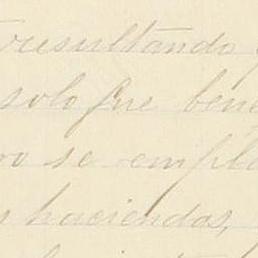 resultando
solo fue bene
ro se empla
s haciendas,